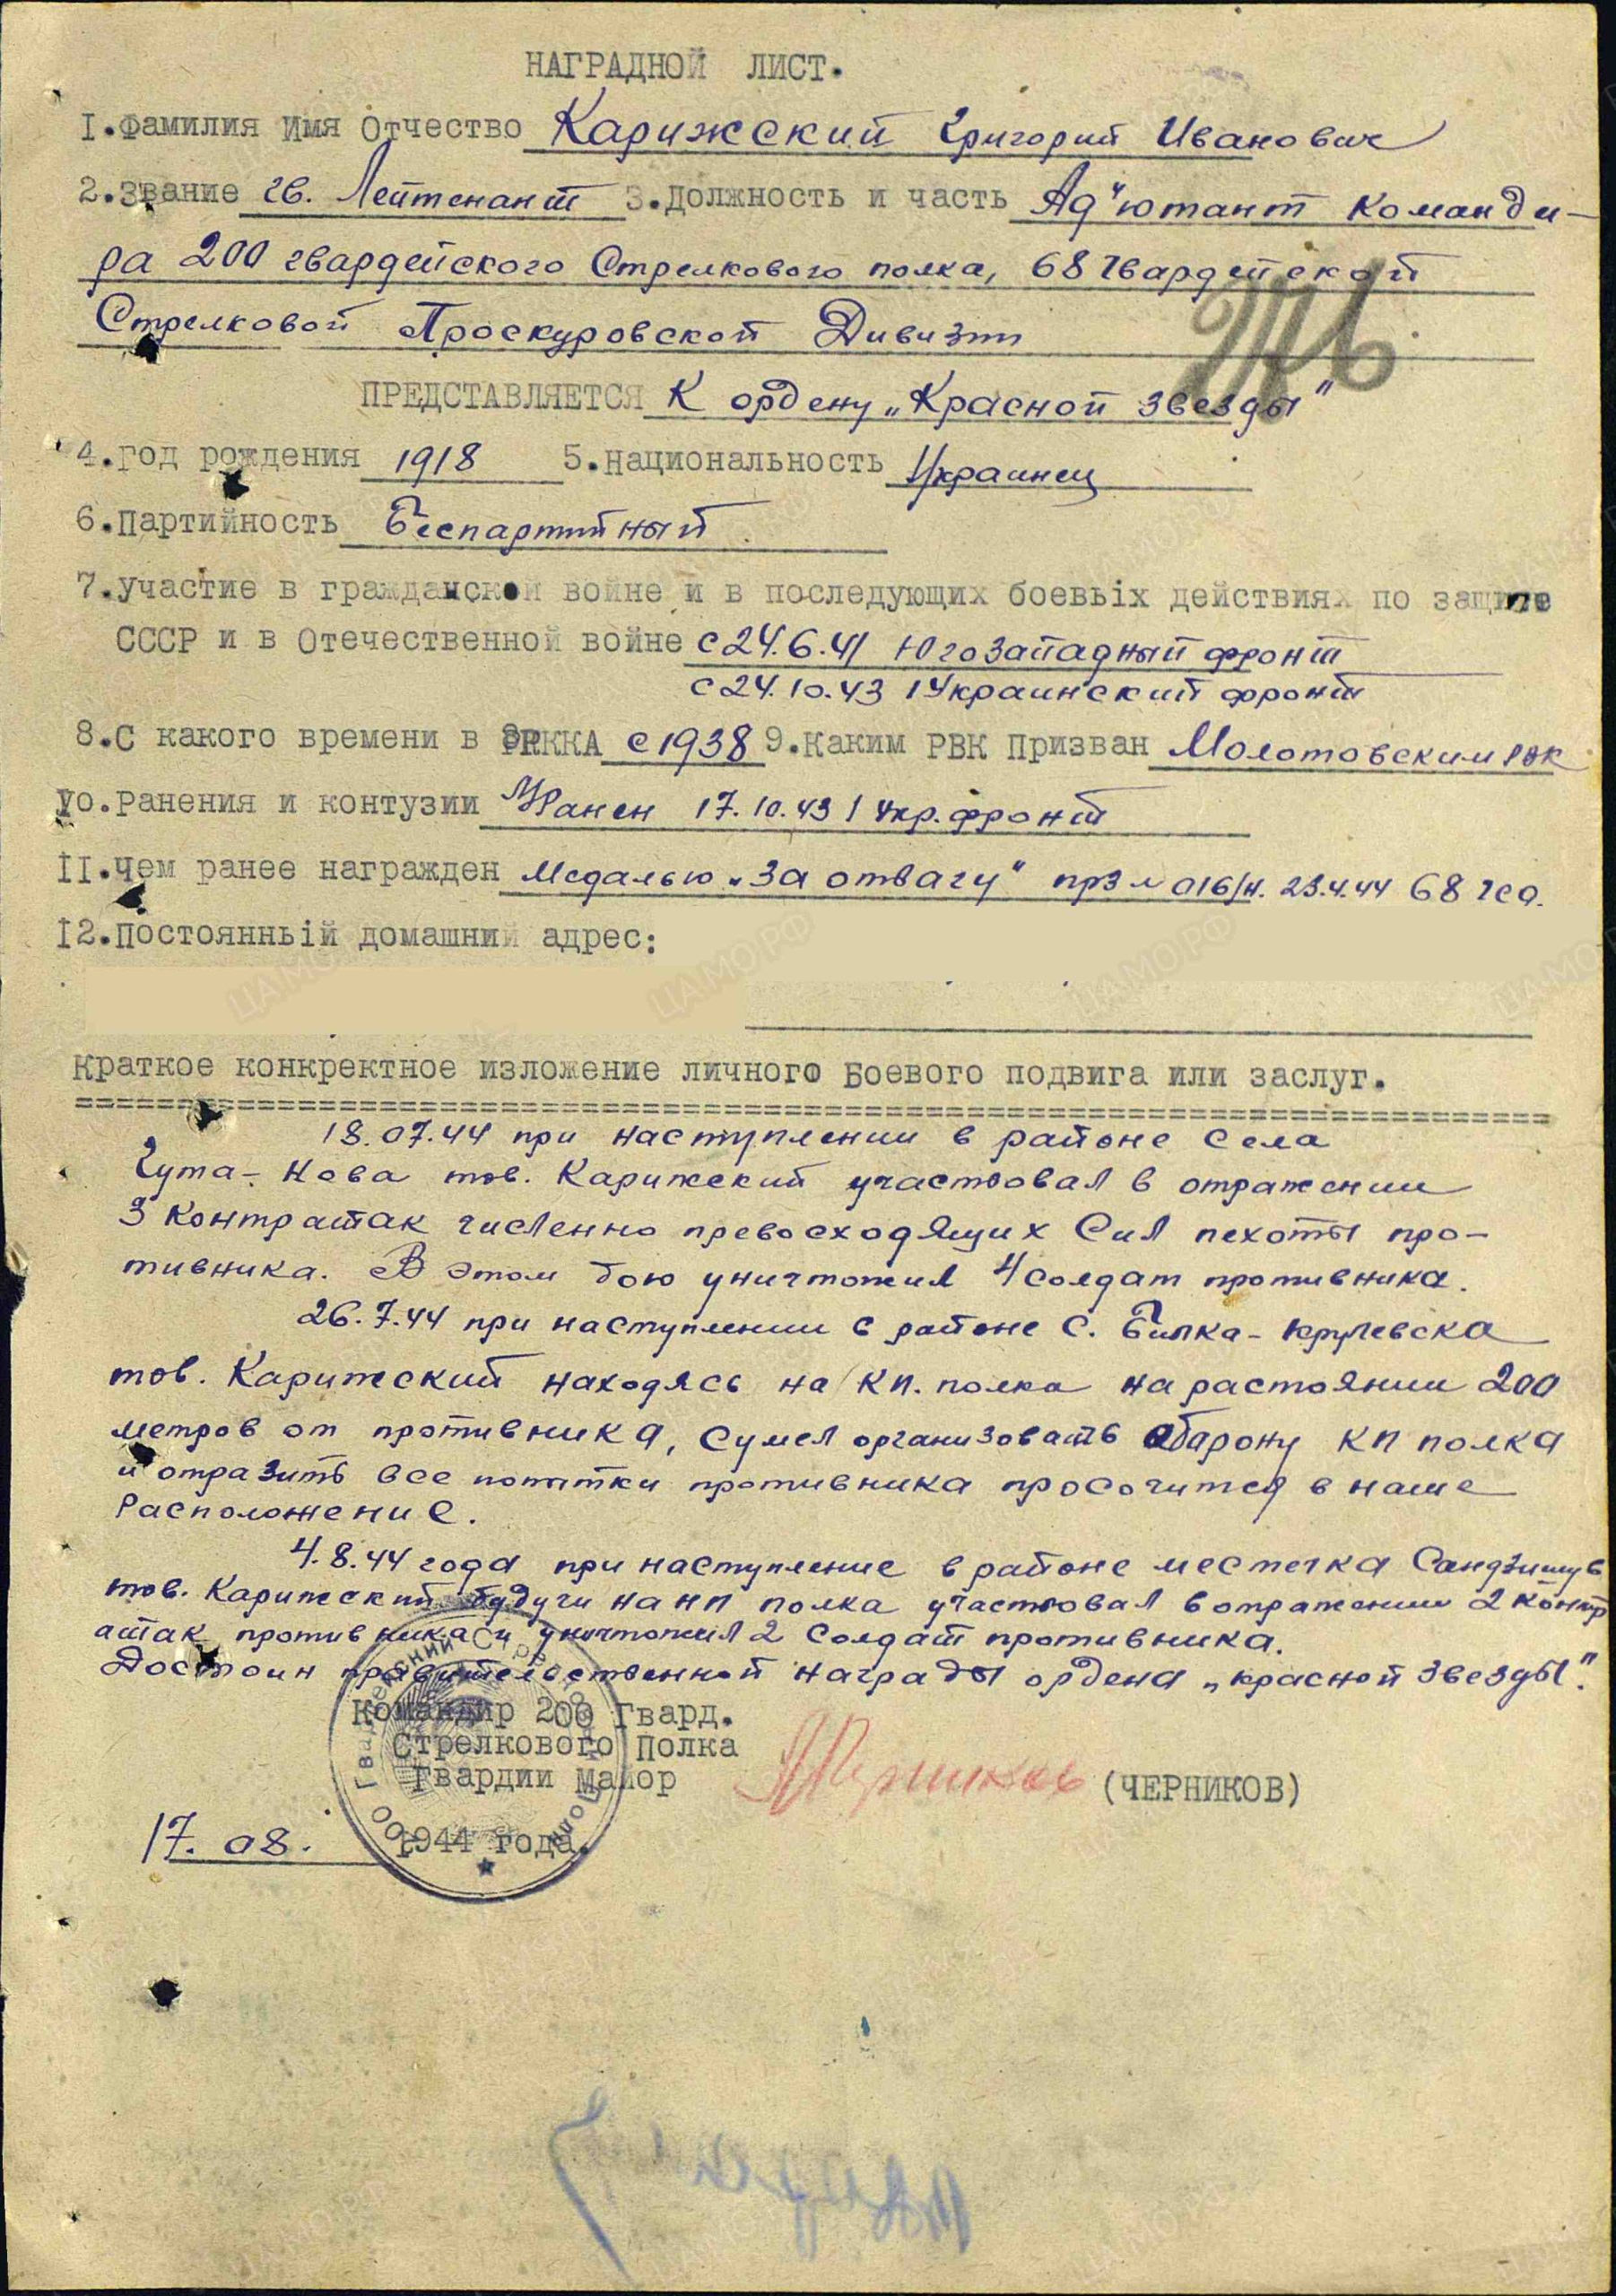 НАГРАДНОЙ ЛИСТ.
I.Фамилия Имя Отчество Карижский Григорий Иванович
2.Звание гв. Лейтенант 3.Должность и часть Ад"ютант команди-
ра 200 гвардейского Стрелкового полка, 68 Гвардейской
Стрелковой Проскуровской Дивизии
ПРЕДСТАВЛЯЕТСЯ К ордену „Красной звезды"
4.Год рождения 1918 5.Национальность Украинец
6.Партийность Беспартийный
7.Участие в гражданской войне и в последующих боевых действиях по защите
СССР и в Отечественной войне с 24.6.41 Югозападный фронт
с 24.10.43 1 Украинский фронт
8.С какого времени в РККА с 1938 9.Каким РВК Призван Молотовским РВК
10.Ранения и контузии Ранен 17.10.43 1 Укр. фронт
II.Чем ранее награжден Медалью „За отвагу" прз № 016/н. 23.4.44 68 гсд.
I2.Постоянный домашний адрес:
Краткое конкретное изложение личного Боевого подвига или заслуг.
18.07.44 при наступлении в районе села
Гута-Нова тов. Карижский участвовал в отражении
3 контратак численно превосходящих Сил пехоты про-
тивника. В этом бою уничтожил 4 солдат противника.
26.7.44 при наступлении в районе С. Билка-Крулевска
тов. Карижский находясь на КП. полка на растоянии 200
метров от противника, сумел организовать обарону КП полка
и отразить все попытки противника просочится в наше
Расположение.
4.8.44 года при наступление в районе местечка Сандзишув
тов. Карижский будучи на НП полка участвовал в отражении 2 контр
атак противника и уничтожил 2 солдат противника.
Достоин правительственной награды ордена „красной звезды".
Командир 200 Гвард.
Стрелкового Полка
Гвардии Майор (ЧЕРНИКОВ)
17.08. 1944 года.